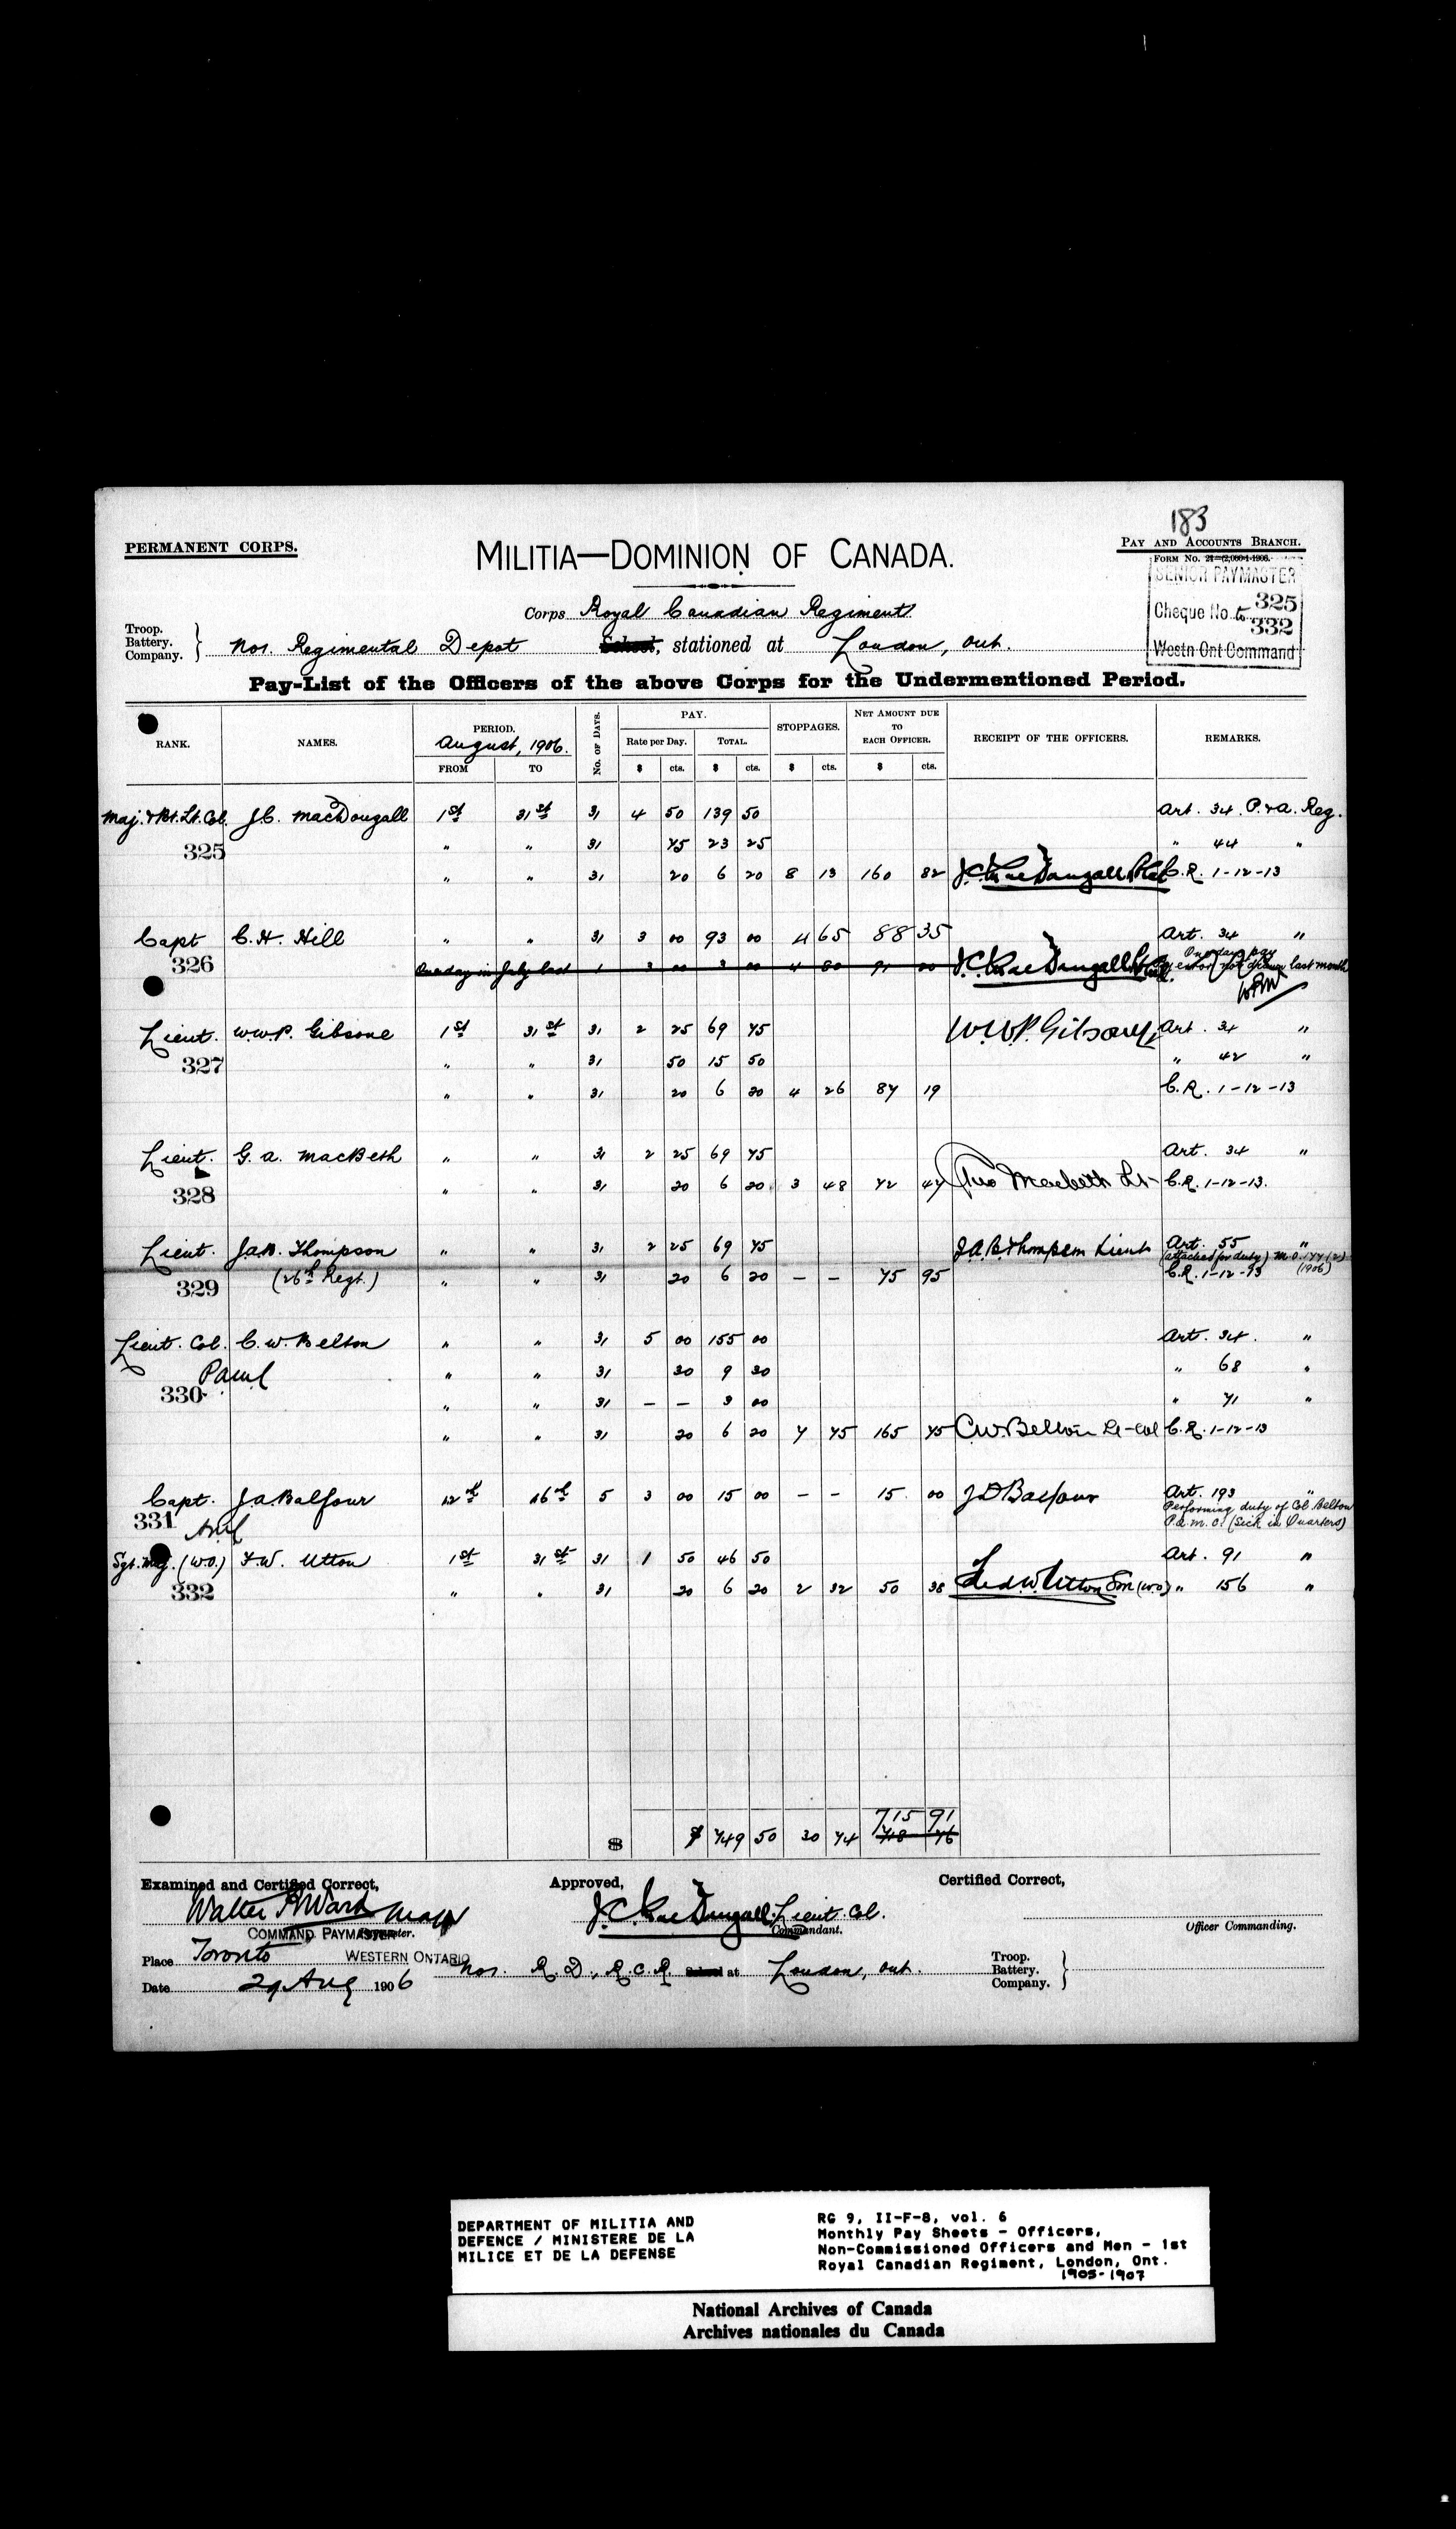 183
PERMANENT CORPS.
MILITIA—DOMINION OF CANADA.
PAY AND ACCOUNTS BRANCH.
FORM NO.
SENIOR PAYMASTER
Cheque No. 325
to 332
Westn Ont Command
Corps Royal Canadian Regiment
Troop.
Battery.
Company.
No1. Regimental Depot School, stationed at London, Ont.
Pay-List of the Officers of the above Corps for the Undermentioned Period.
RANK. NAMES. PERIOD. August, 1906. FROM TO No. OF DAYS. PAY. Rate per Day. $ cts. TOTAL. $ cts. STOPPAGES. $ cts. NET AMOUNT DUE TO EACH OFFICER. $ cts. RECEIPT OF THE OFFICERS. REMARKS.
Maj. & Bt. Lt. Col. J.C. MacDougall 1st 31st 31 4 50 139 50 Art. 34 P. & A. Reg.
325 " " 31 75 23 25 " 44 "
" " 31 20 6 20 8 13 160 82 J.C. MacDougall C.R. 1-12-13
Capt C.H. Hill " " 31 3 00 93 00 4 65 88 35 Art. 34 "
326 One day in July last 1 3 00 3 00 4 80 91 20 J.C. MacDougall One days pay
in error not drawn last month
WRW
Lieut. W.W.P. Gibsone 1st 31st 31 2 25 69 75 W.W.P. Gibsone Art. 34 "
327 " " 31 50 15 50 " 42 "
" " 31 20 6 20 4 26 87 19 C.R. 1-12-13
Lieut. G.A. MacBeth " " 31 2 25 69 75 Art. 34 "
328 " " 31 20 6 20 3 48 72 47 Geo Macbeth Lt C.R. 1-12-13.
Lieut. J.A.B. Thompson " " 31 2 25 69 75 J.A.B. Thompson Lieut Art. 55 "
(attached for duty) M.O. 177 (2) (1906)
329 (26th Regt.) " " 31 20 6 20 — — 75 95 C.R. 1-12-13
Lieut. Col. C.W. Belton " " 31 5 00 155 00 Art. 34. "
PAMC " " 31 30 9 30 " 68 "
330 " " 31 — — 3 00 " 71 "
" " 31 20 6 20 7 75 165 75 C.W. Belton Lt-Col C.R. 1-12-13
Capt. J.D. Balfour 12th 16th 5 3 00 15 00 — — 15 00 J D Balfour Art. 193 "
331 AMC Performing duty of Col Belton
P.A.M.C. (Sick in Quarters)
Sgt. Maj. (W.O.) F.W. Utton 1st 31st 31 1 50 46 50 Art. 91 "
332 " " 31 20 6 20 2 32 50 38 Fred W. Utton SM (W.O) " 156 "
715 91
8 $ 749 50 30 74 718 76
Examined and Certified Correct, Approved, Certified Correct,
Walter R Ward Major J.C. MacDougall Lieut. Col.
COMMAND PAYMASTER Paymaster. Commandant. Officer Commanding.
WESTERN ONTARIO
Place Toronto No1. R.D., R.C.R. School at London, Ont. Troop.
Battery.
Company.
Date 29 Aug 1906
DEPARTMENT OF MILITIA AND
DEFENCE / MINISTERE DE LA
MILICE ET DE LA DEFENSE
RG 9, II-F-8, vol. 6
Monthly Pay Sheets - Officers,
Non-Commissioned Officers and Men - 1st
Royal Canadian Regiment, London, Ont.
1905-1907
National Archives of Canada
Archives nationales du Canada